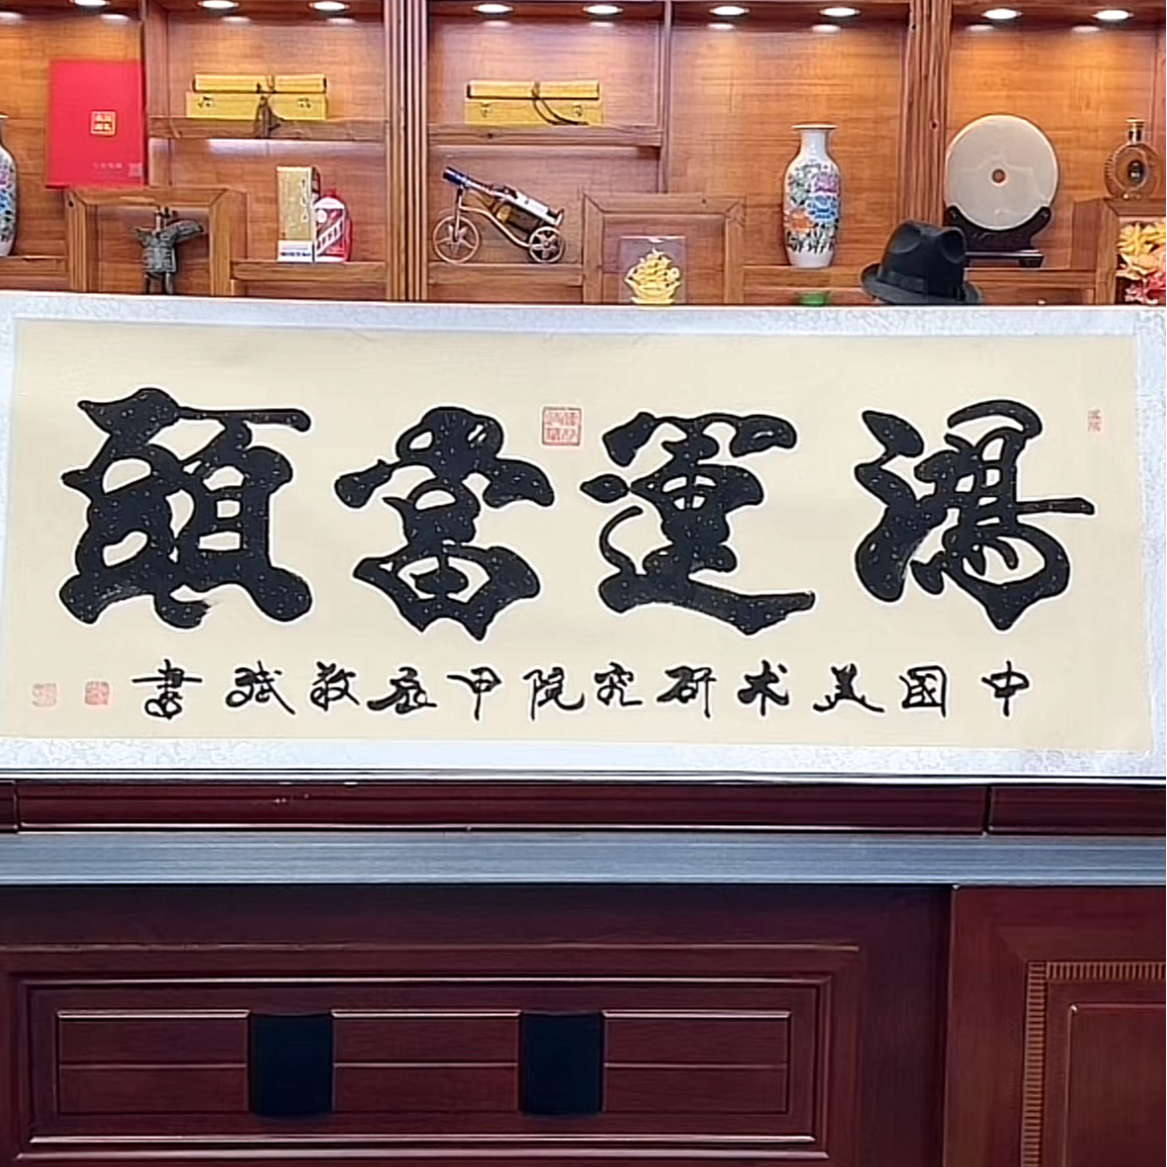 鴻運當頭
中國美术研究院甲辰敬斌書